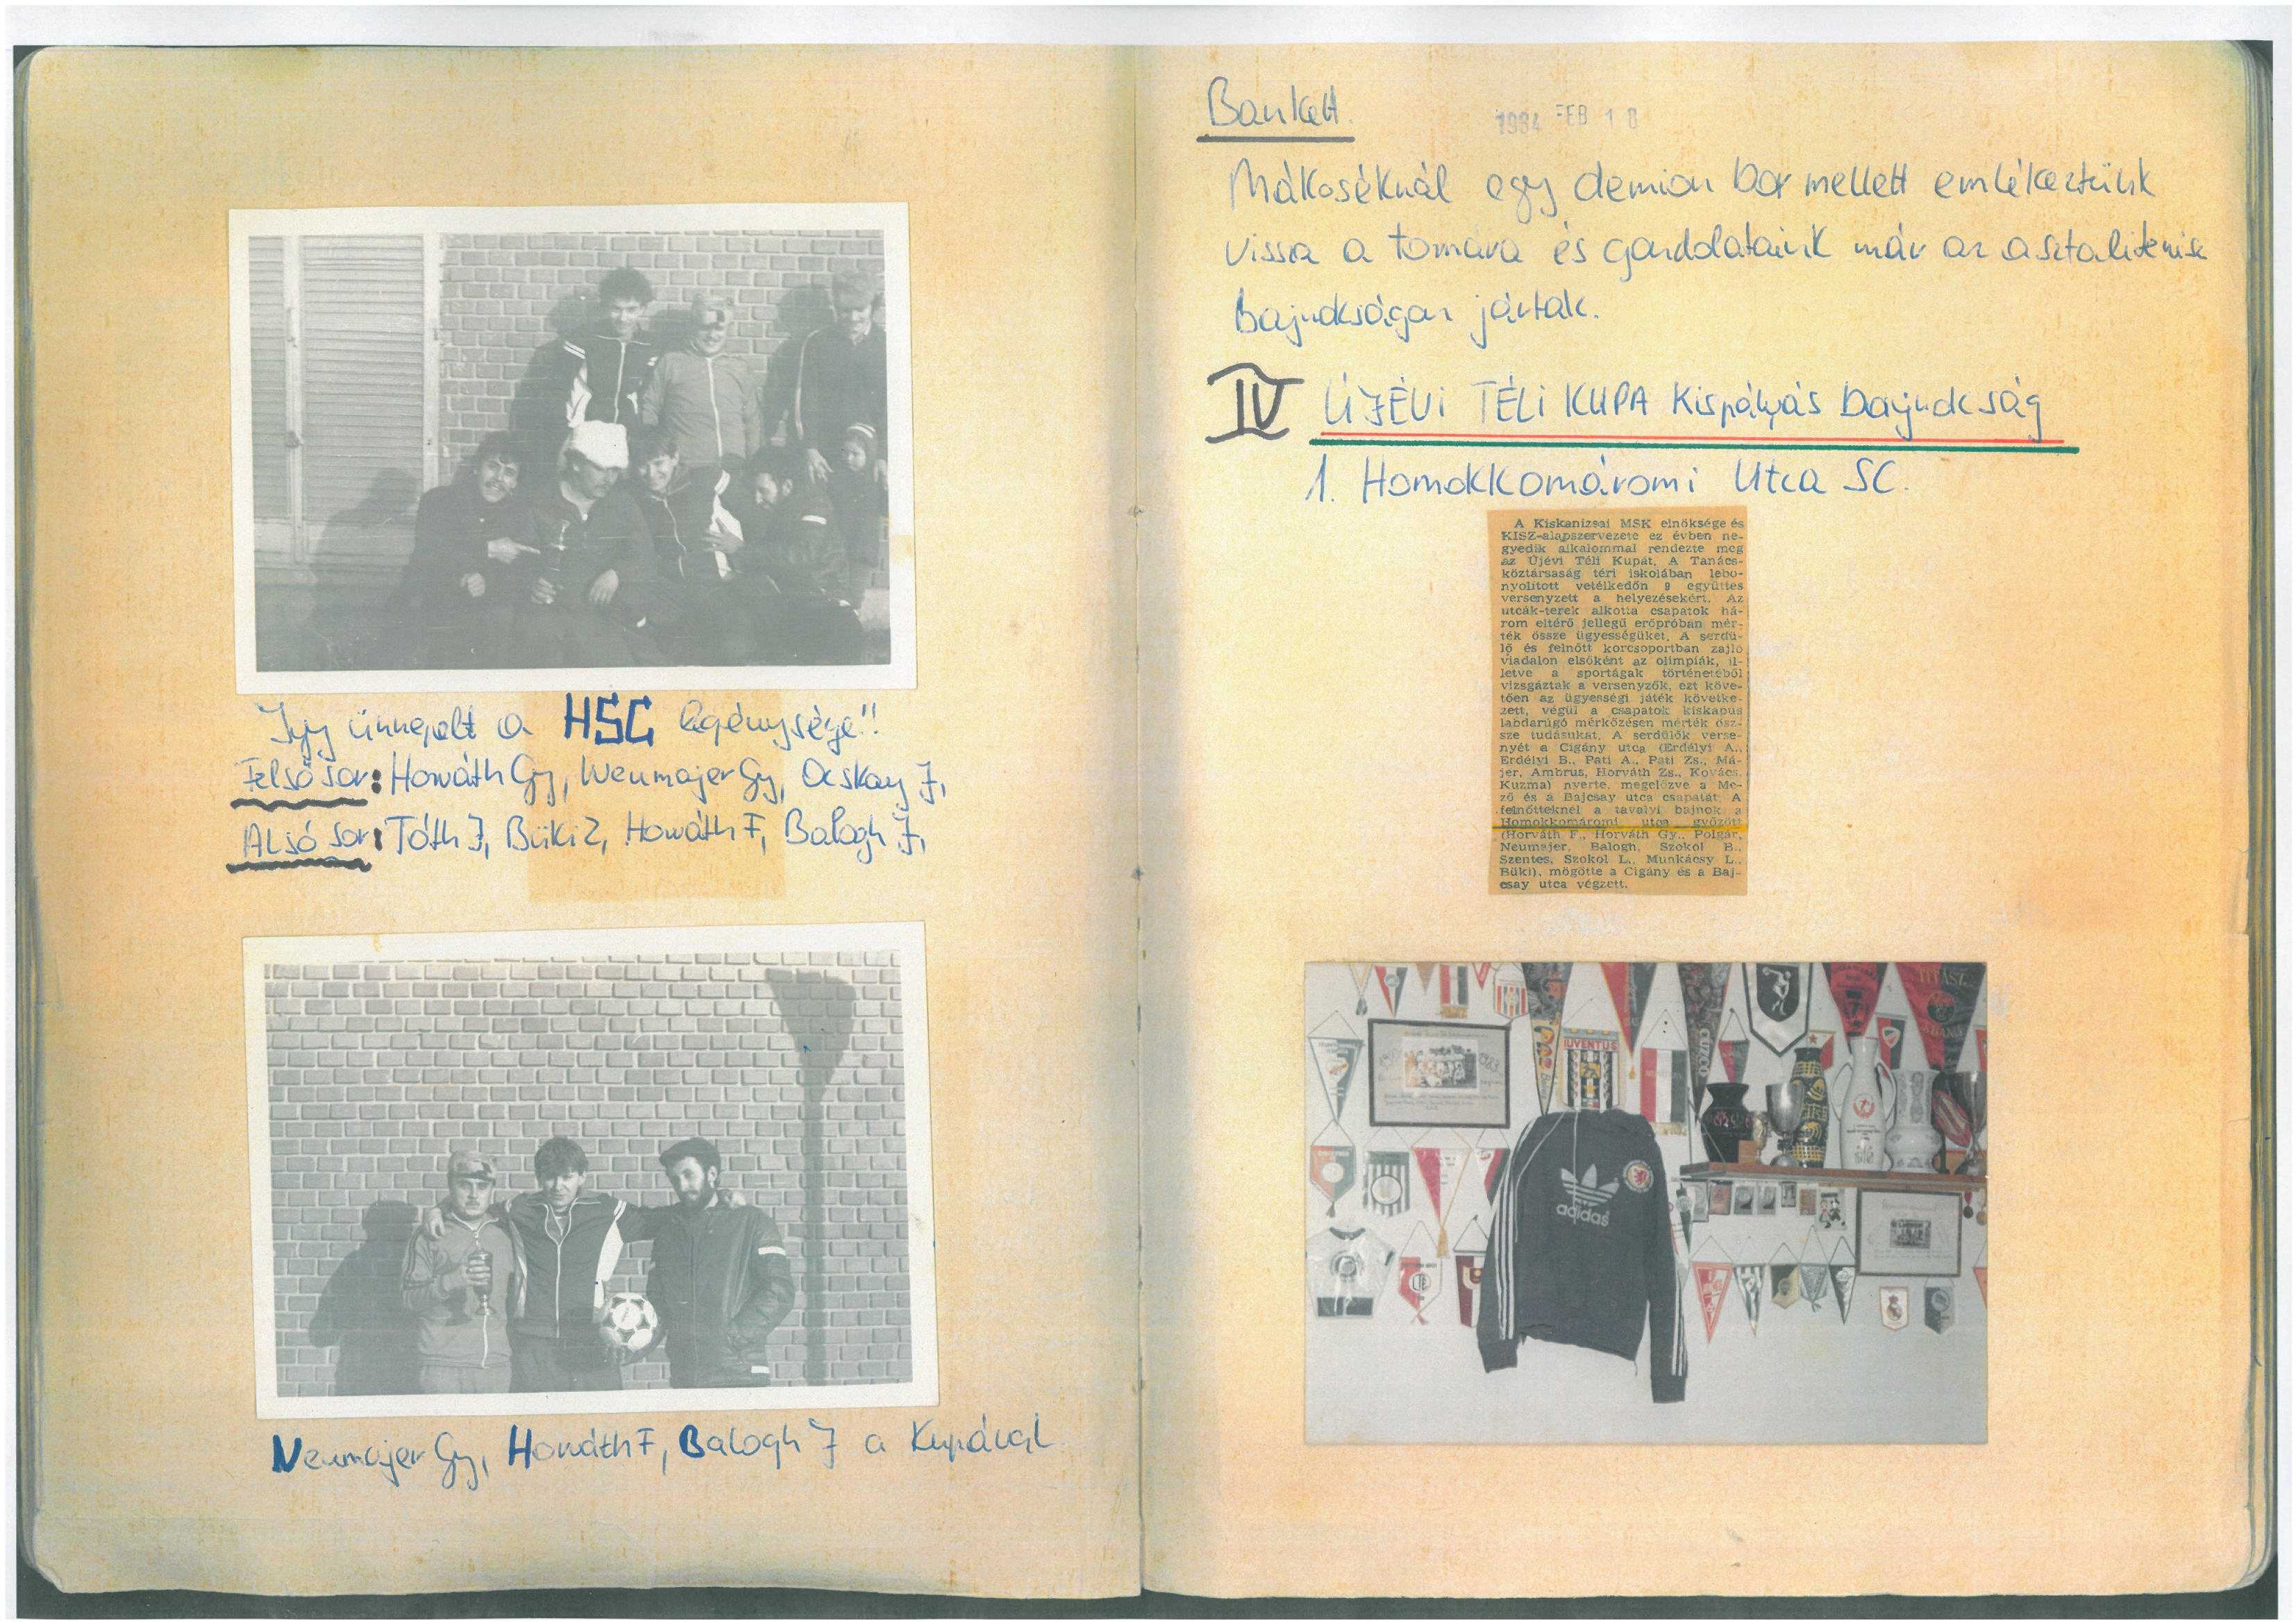 Így ünnepelt a HSC legénysége!!
Felső sor: Horváth Gy, Neumajer Gy, Ocskay J,
Alsó sor: Tóth J, Büki Z, Horváth F, Balogh J,
Neumajer Gy, Horváth F, Balogh J a Kupával
Bankett.
1984 FEB 18
Mákoséknál egy demion bor mellett emlékeztünk
vissza a tornára és gondolataink már az asztalitenisz
bajnokságon jártak.
IV ÚJÉVI TÉLI KUPA Kispályás bajnokság
1. Homokkomáromi Utca SC.
A Kiskanizsai MSK elnöksége és
KISZ-alapszervezete ez évben ne-
gyedik alkalommal rendezte meg
az Újévi Téli Kupát. A Tanács-
köztársaság téri iskolában lebo-
nyolított vetélkedőn 9 együttes
versenyzett a helyezésekért. Az
utcák-terek alkotta csapatok há-
rom eltérő jellegű erőpróban mér-
ték össze ügyességüket. A serdü-
lő és felnőtt korcsoportban zajló
viadalon elsőként az olimpiák, il-
letve a sportágak történetéből
vizsgáztak a versenyzők, ezt köve-
tően az ügyességi játék követke-
zett, végül a csapatok kiskapus
labdarúgó mérkőzésen mérték ösz-
sze tudásukat. A serdülők verse-
nyét a Cigány utca (Erdélyi A.,
Erdélyi B., Pati A., Pati Zs., Má-
jer, Ambrus, Horváth Zs., Kovács,
Kuzma) nyerte, megelőzve a Me-
ző és a Bajcsay utca csapatát. A
felnőtteknél a tavalyi bajnok a
Homokkomáromi utca győzött
(Horváth F., Horváth Gy., Polgár,
Neumajer, Balogh, Szokol B.,
Szentes, Szokol L., Munkácsy L.,
Büki), mögötte a Cigány és a Baj-
csay utca végzett.
JUVENTUS
1983
adidas